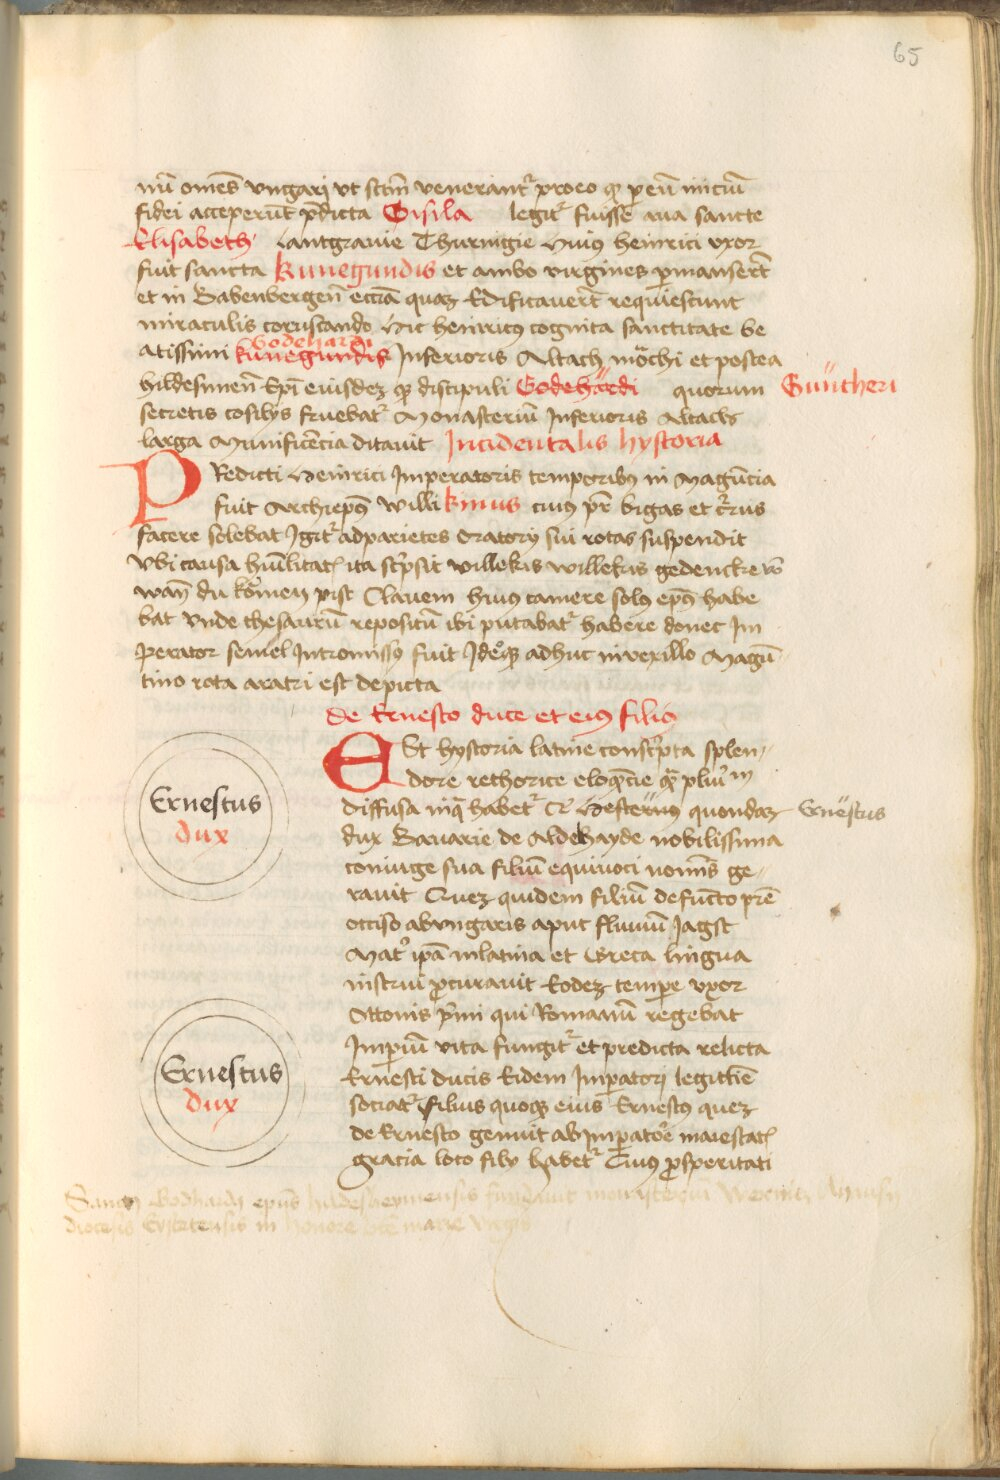 65
nū om̄es vngari vt sctm̄ venerant᷑ proeo qꝫ p eū iniciū
fidei acceperūt p̄dicta Gisila legit᷑ fuisse aua sancte
Elisabeth lantgrauie Thuringie Huius heinrici vxor
fuit sancta kunegundis et ambo virgines p̄manserūt
et in Babenbergen̄ ecc̄ia quaꝫ Edificauerūt requiescunt
miraculis coruscando Hic heinricus cognita sanctitate be
Godehardi
atissimi kunegundis Inferioris Altach mōchi et postea
hildesimen̄ Ep̄i eiusdeꝫ qꝫ discipuli Godehardi quorum Guntheri
secretis cōsilijs fruebat᷑ Monasteriū Inferioris Altach
larga Munificēcia ditauit Incidentalis hystoria
PRedicti Heinrici Imperatoris temporibus in Magūcia
fuit Archiepūs Willikinus cuius pr̄ bigas et c᷑rus
facere solebat Igit᷑ ad parietes Oratorij sui rotas suspendit
Vbi causa hūilitat᷑ ita sc᷑psit willekis willekis gedencke vō
wan̄ du kōmen pist Clauem huius camere solus epūs habe
bat Vnde thesaurū repositū ibi putabat᷑ habere donec Im
perator semel Intromissus fuit Jdeoqꝫ adhuc in vexillo Magū
tino rota aratri est depicta
de Ernesto duce et eius filio
ESt hystoria latine consc᷑pta splen
dore rethorice eloquēcie
diffusa habet᷑ Hesternus quondaꝫ Ernestus
dux Bauarie de Aldehayde nobilissima
coniuge sua filiū equiuoci nom̄is ge
rauit Queꝫ quidem filiū defuncto prē
occiso ab vngaris aput fluuiū Jagst
Mat᷑ ip̄a in latina et Greca lingua
instrui procurauit Eodeꝫ tempore vxor
Ottonis p᷑mi qui Romanū regebat
Imperiū vita fungit᷑ et predicta relicta
Ernesti ducis Eidem Imperatori legittīe
sociat᷑ filius quoqꝫ eius Ernestus queꝫ
de Ernesto genuit ab Imperatore maiestat᷑
gracia loco filij habet᷑ Cuius prosperitati
Ernestus
dux
Ernestus
dux
Godhardi epūs hildesheymensis fundauit monasteriū
diocesis in honore bt̄e marie virgīs